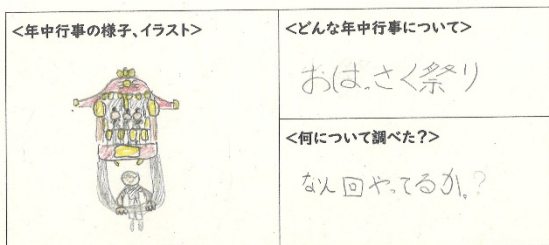 <年中行事の様子、イラスト>
<どんな年中行事について>
おは。さく祭り
<何について調べた?>
なん回やってるか。?